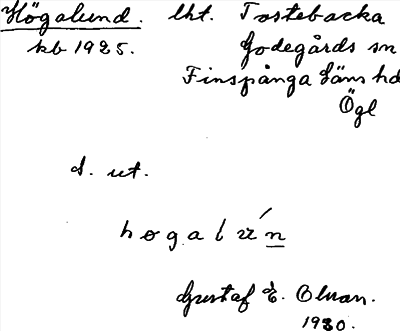 Högalund. lht. Tostebacka
kb 1925. Godegårds sn
Finspånga läns hd
Ögl
d. ut.
hogalún
Gustaf E. Olman.
1930.